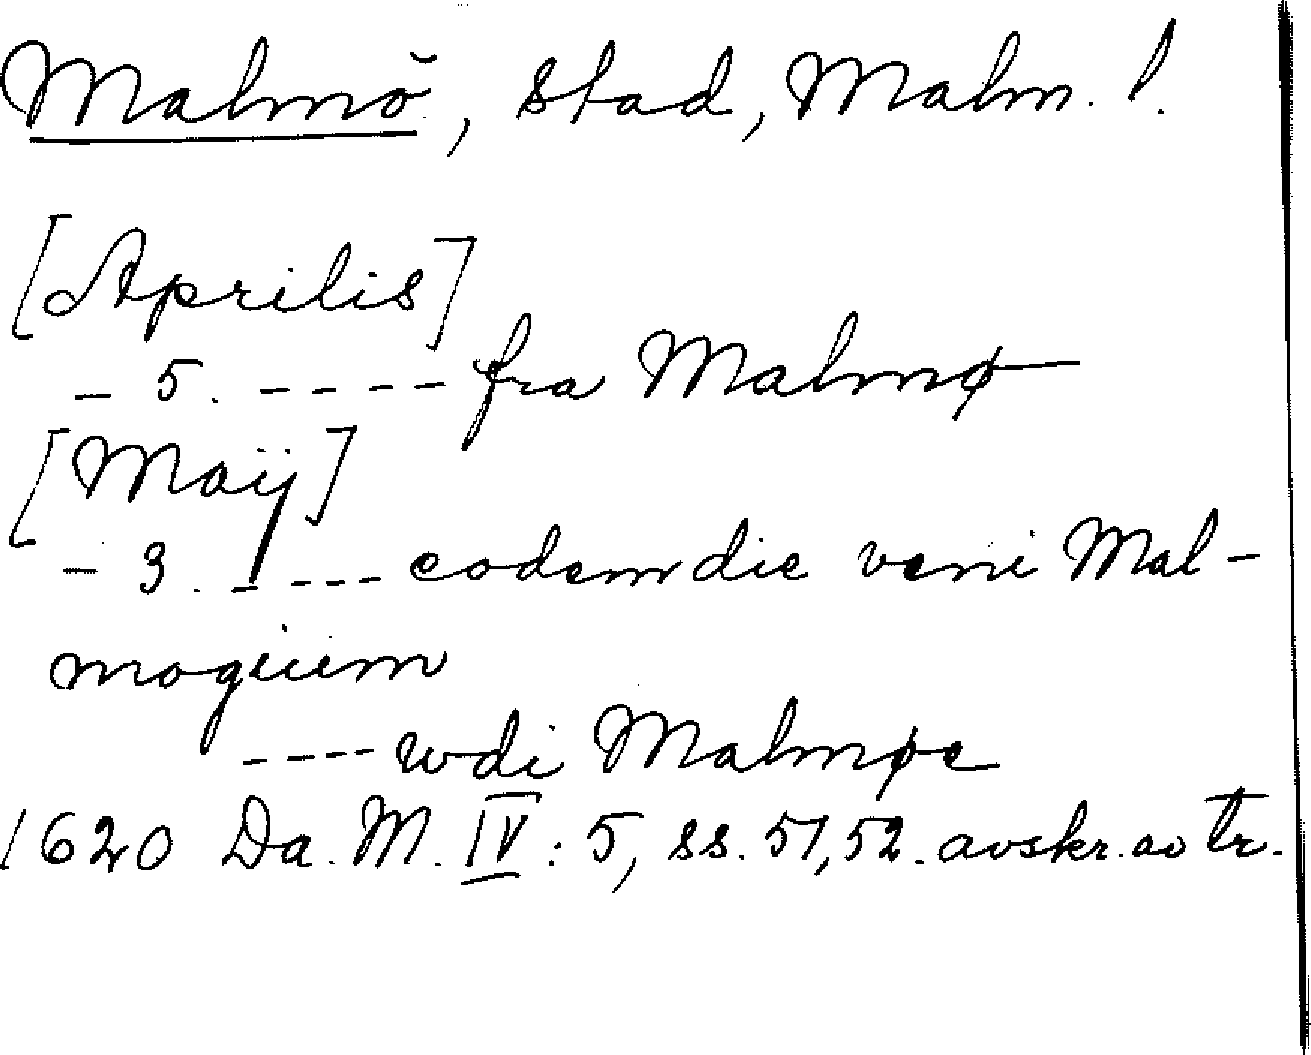 Malmö, stad, Malm. l.
[Aprilis]
- 5. - - - - fra Malmø
[Maij]
- 3. - - - - eodem die veni Mal-
mogium
- - - - wdi Malmøe
1620 Da. M. IV: 5, ss. 51, 52. avskr. av tr.